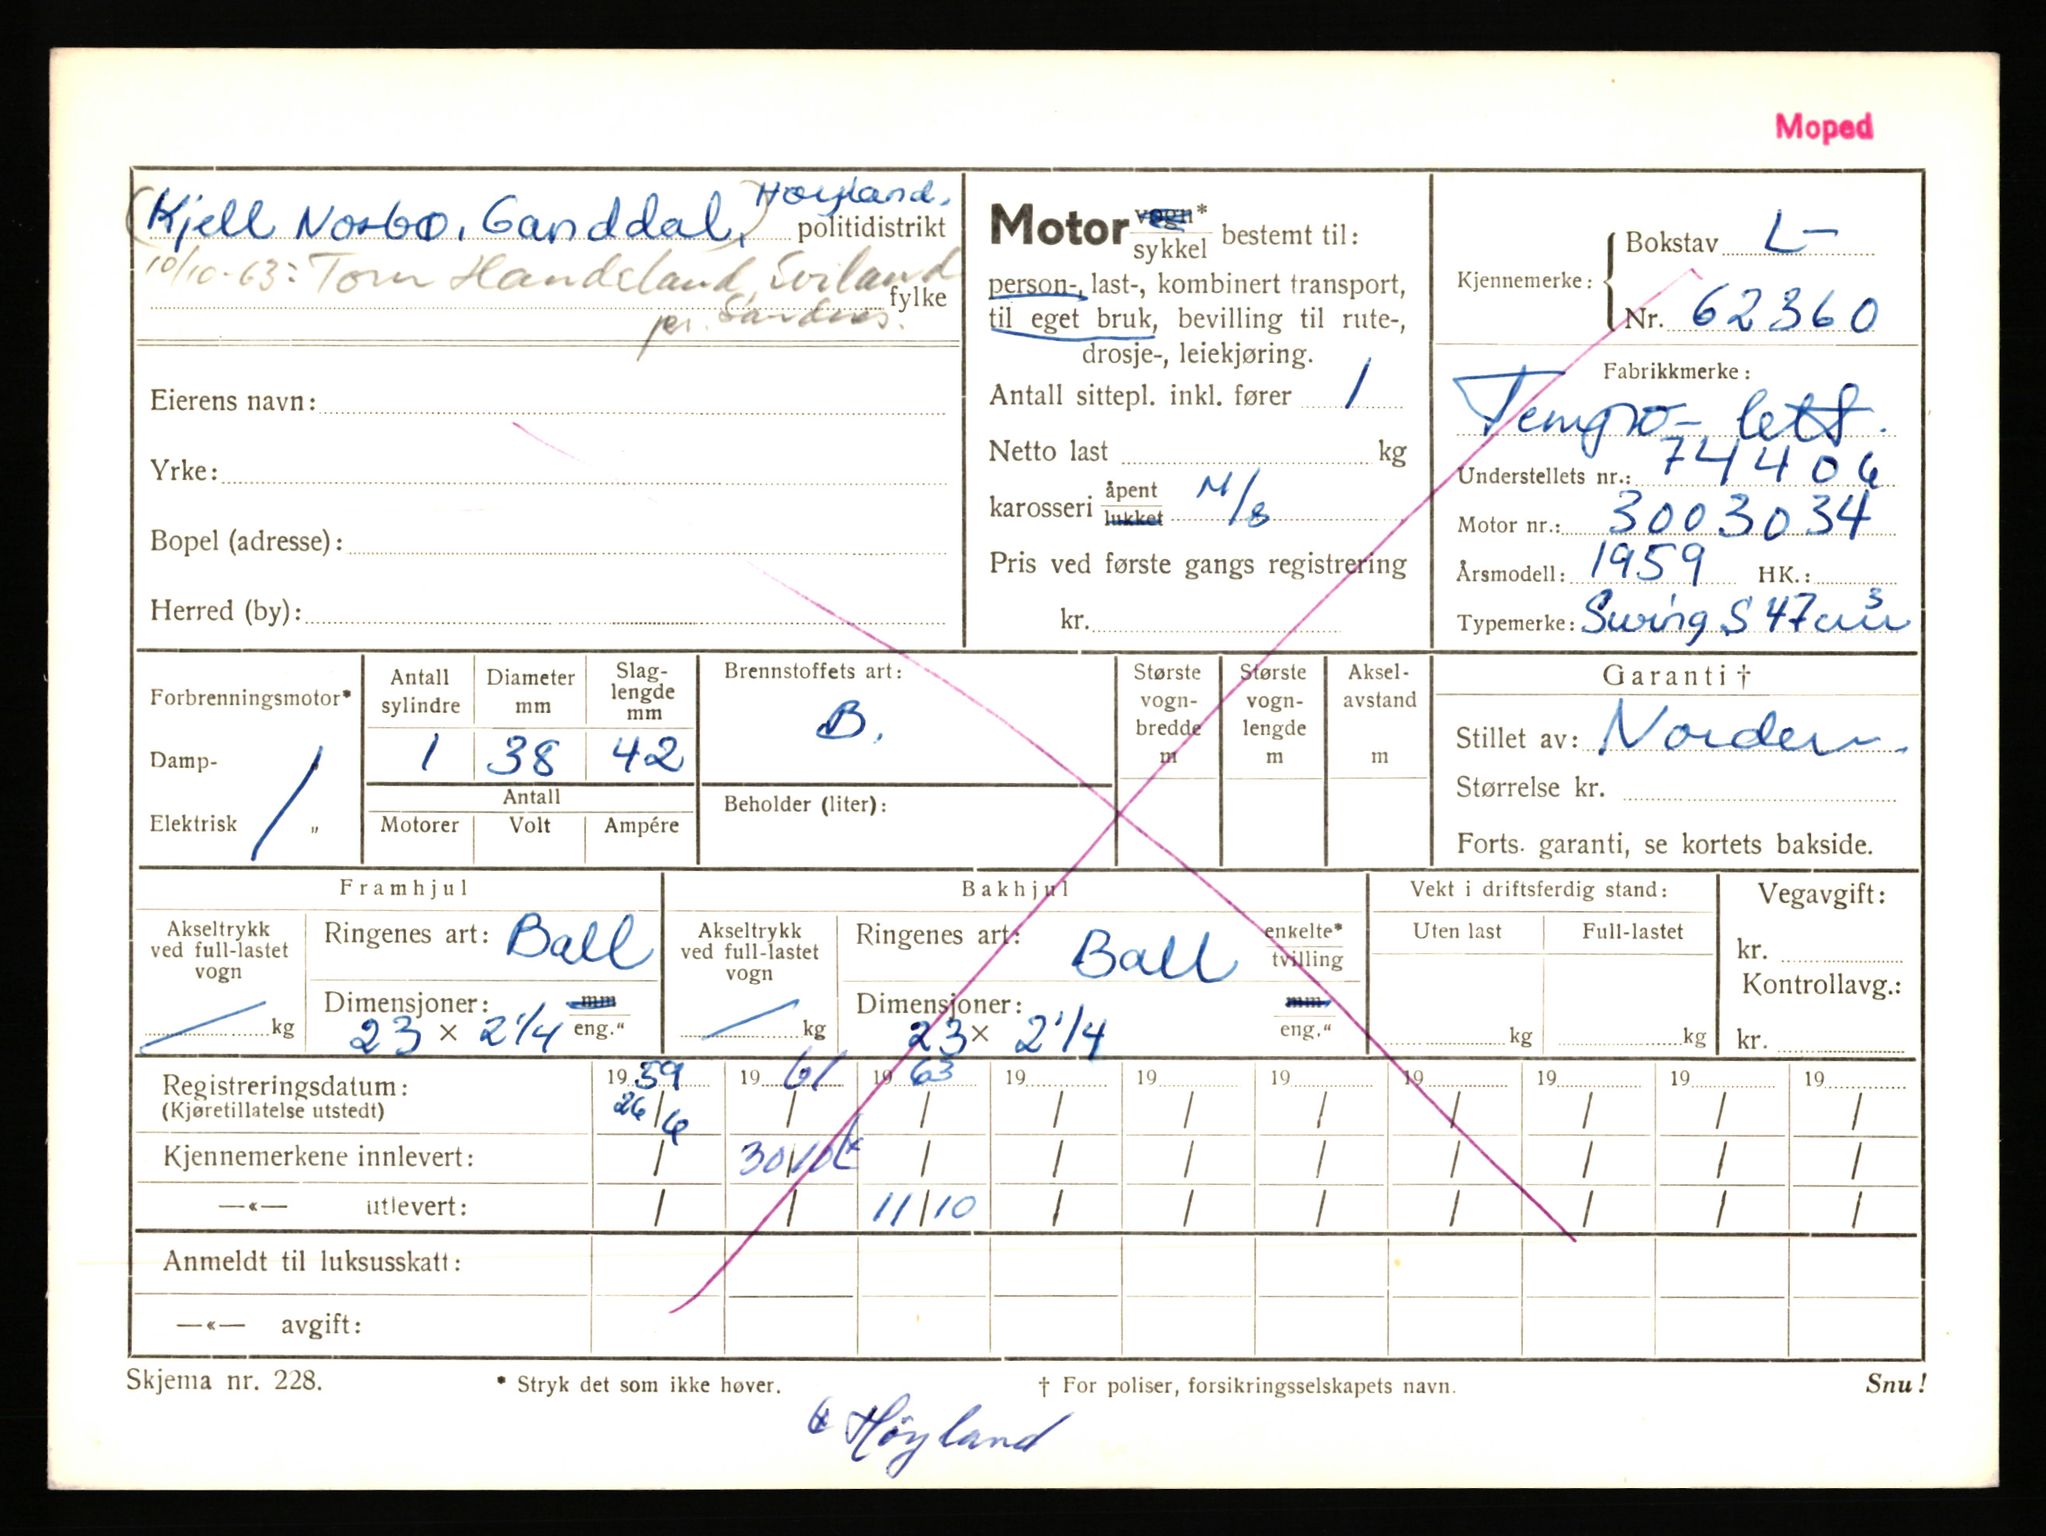 Moped
(Kjell Nosbø, Ganddal,) Høyland.
politidistrikt
10/10-63: Tom Handeland, Sviland
fylke
pr. Sandnes.
Eierens navn:
Yrke:
Bopel (adresse):
Herred (by):
Motor vogn*
sykkel bestemt til:
person-, last-, kombinert transport,
til eget bruk, bevilling til rute-,
drosje-, leiekjøring.
Antall sittepl. inkl. fører 1
Netto last kg
karosseri åpent M/s
lukket
Pris ved første gangs registrering
kr.
Kjennemerke: { Bokstav L-
Nr. 62360
Fabrikkmerke:
Tempo-lett.
Understellets nr.: 744 06
Motor nr.: 3003034
Årsmodell: 1959 HK.:
Typemerke: Swing S 47 cm³
Forbrenningsmotor*
Damp-
Elektrisk "
Antall sylindre
1
Diameter mm
38
Slag-lengde mm
42
Antall
Motorer Volt Ampére
Brennstoffets art:
B.
Beholder (liter):
Største vogn-bredde m
Største vogn-lengde m
Aksel-avstand m
Garanti †
Stillet av: Norden
Størrelse kr.
Forts. garanti, se kortets bakside.
Framhjul
Akseltrykk
ved full-lastet
vogn
kg
Ringenes art: Ball
Dimensjoner: mm
23 × 2 1/4 eng."
Bakhjul
Akseltrykk
ved full-lastet
vogn
kg
Ringenes art: Ball enkelte*
tvilling
Dimensjoner: mm
23 × 2 1/4 eng."
Vekt i driftsferdig stand:
Uten last Full-lastet
kg kg
Vegavgift:
kr.
Kontrollavg.:
kr.
Registreringsdatum: 1959 1961 1963 19 19 19 19 19 19 19
(Kjøretillatelse utstedt) 26/6 / / / / / / / / /
Kjennemerkene innlevert: / 30/10 / / / / / / / /
—«— utlevert: / / 11/10 / / / / / / /
Anmeldt til luksusskatt:
—«— avgift:
Skjema nr. 228.
* Stryk det som ikke høver.
† For poliser, forsikringsselskapets navn.
Snu!
Høyland